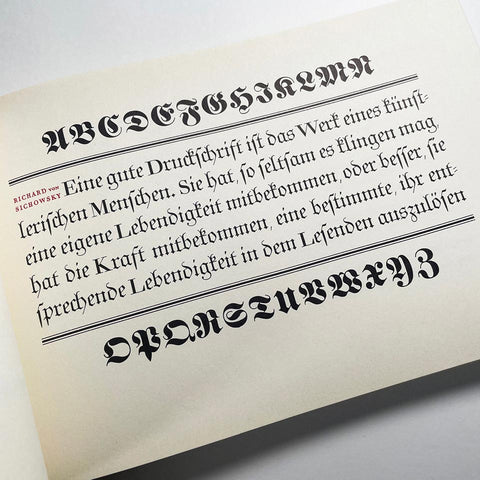 ABCDEFGHIKLMN
RICHARD von
SICHOWSKY
Eine gute Druckſchrift iſt das Werk eines künſt-
leriſchen Menſchen. Sie hat, ſo ſeltſam es klingen mag
eine eigene Lebendigkeit mitbekommen, oder beſſer, ſie
hat die Kraft mitbekommen, eine beſtimmte, ihr ent-
ſprechende Lebendigkeit in dem Leſenden auszulöſen
OPQRSTUVWXYZ